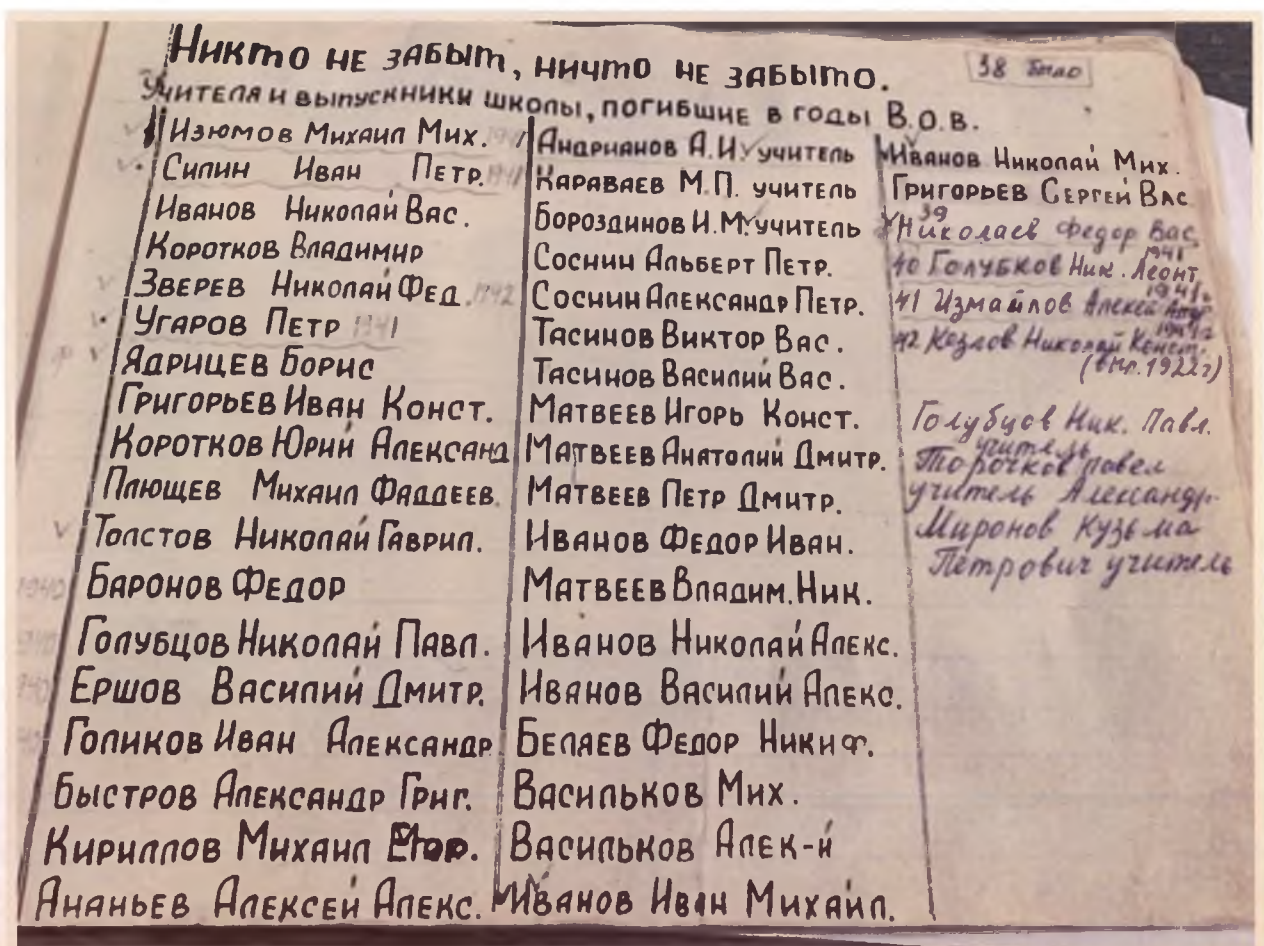 Никто не забыт, ничто не забыто.
38 было
Учителя и выпускники школы, погибшие в годы В.О.В.
Изюмов Михаил Мих.
Силин Иван Петр.
Иванов Николай Вас.
Коротков Владимир
Зверев Николай Фед. 1942
Угаров Петр 1941
Ядрицев Борис
Григорьев Иван Конст.
Коротков Юрий Александ
Плющев Михаил Фаддеев.
Толстов Николай Гаврил.
1940 Баронов Федор
Голубцов Николай Павл.
Ершов Василий Дмитр.
Голиков Иван Александр
Быстров Александр Григ.
Кириллов Михаил Егор.
Ананьев Алексей Алекс.
Андрианов А.И. учитель
Караваев М.П. учитель
Бороздинов И.М. учитель
Соснин Альберт Петр.
Соснин Александр Петр.
Тасинов Виктор Вас.
Тасинов Василий Вас.
Матвеев Игорь Конст.
Матвеев Анатолий Дмитр.
Матвеев Петр Дмитр.
Иванов Федор Иван.
Матвеев Владим. Ник.
Иванов Николай Алекс.
Иванов Василий Алекс.
Беляев Федор Никиф.
Васильков Мих.
Васильков Алек-й
Иванов Иван Михаил.
Иванов Николай Мих.
Григорьев Сергей Вас
39
Николаев Федор Вас
1941
40 Голубков Ник. Леонт.
1941г.
41 Измайлов Алексей
42 Козлов Николай Конст.
(вып. 1922г)
Голубцов Ник. Павл.
учитель
Торочков Павел
учитель Александр.
Миронов Кузьма
Петрович учитель